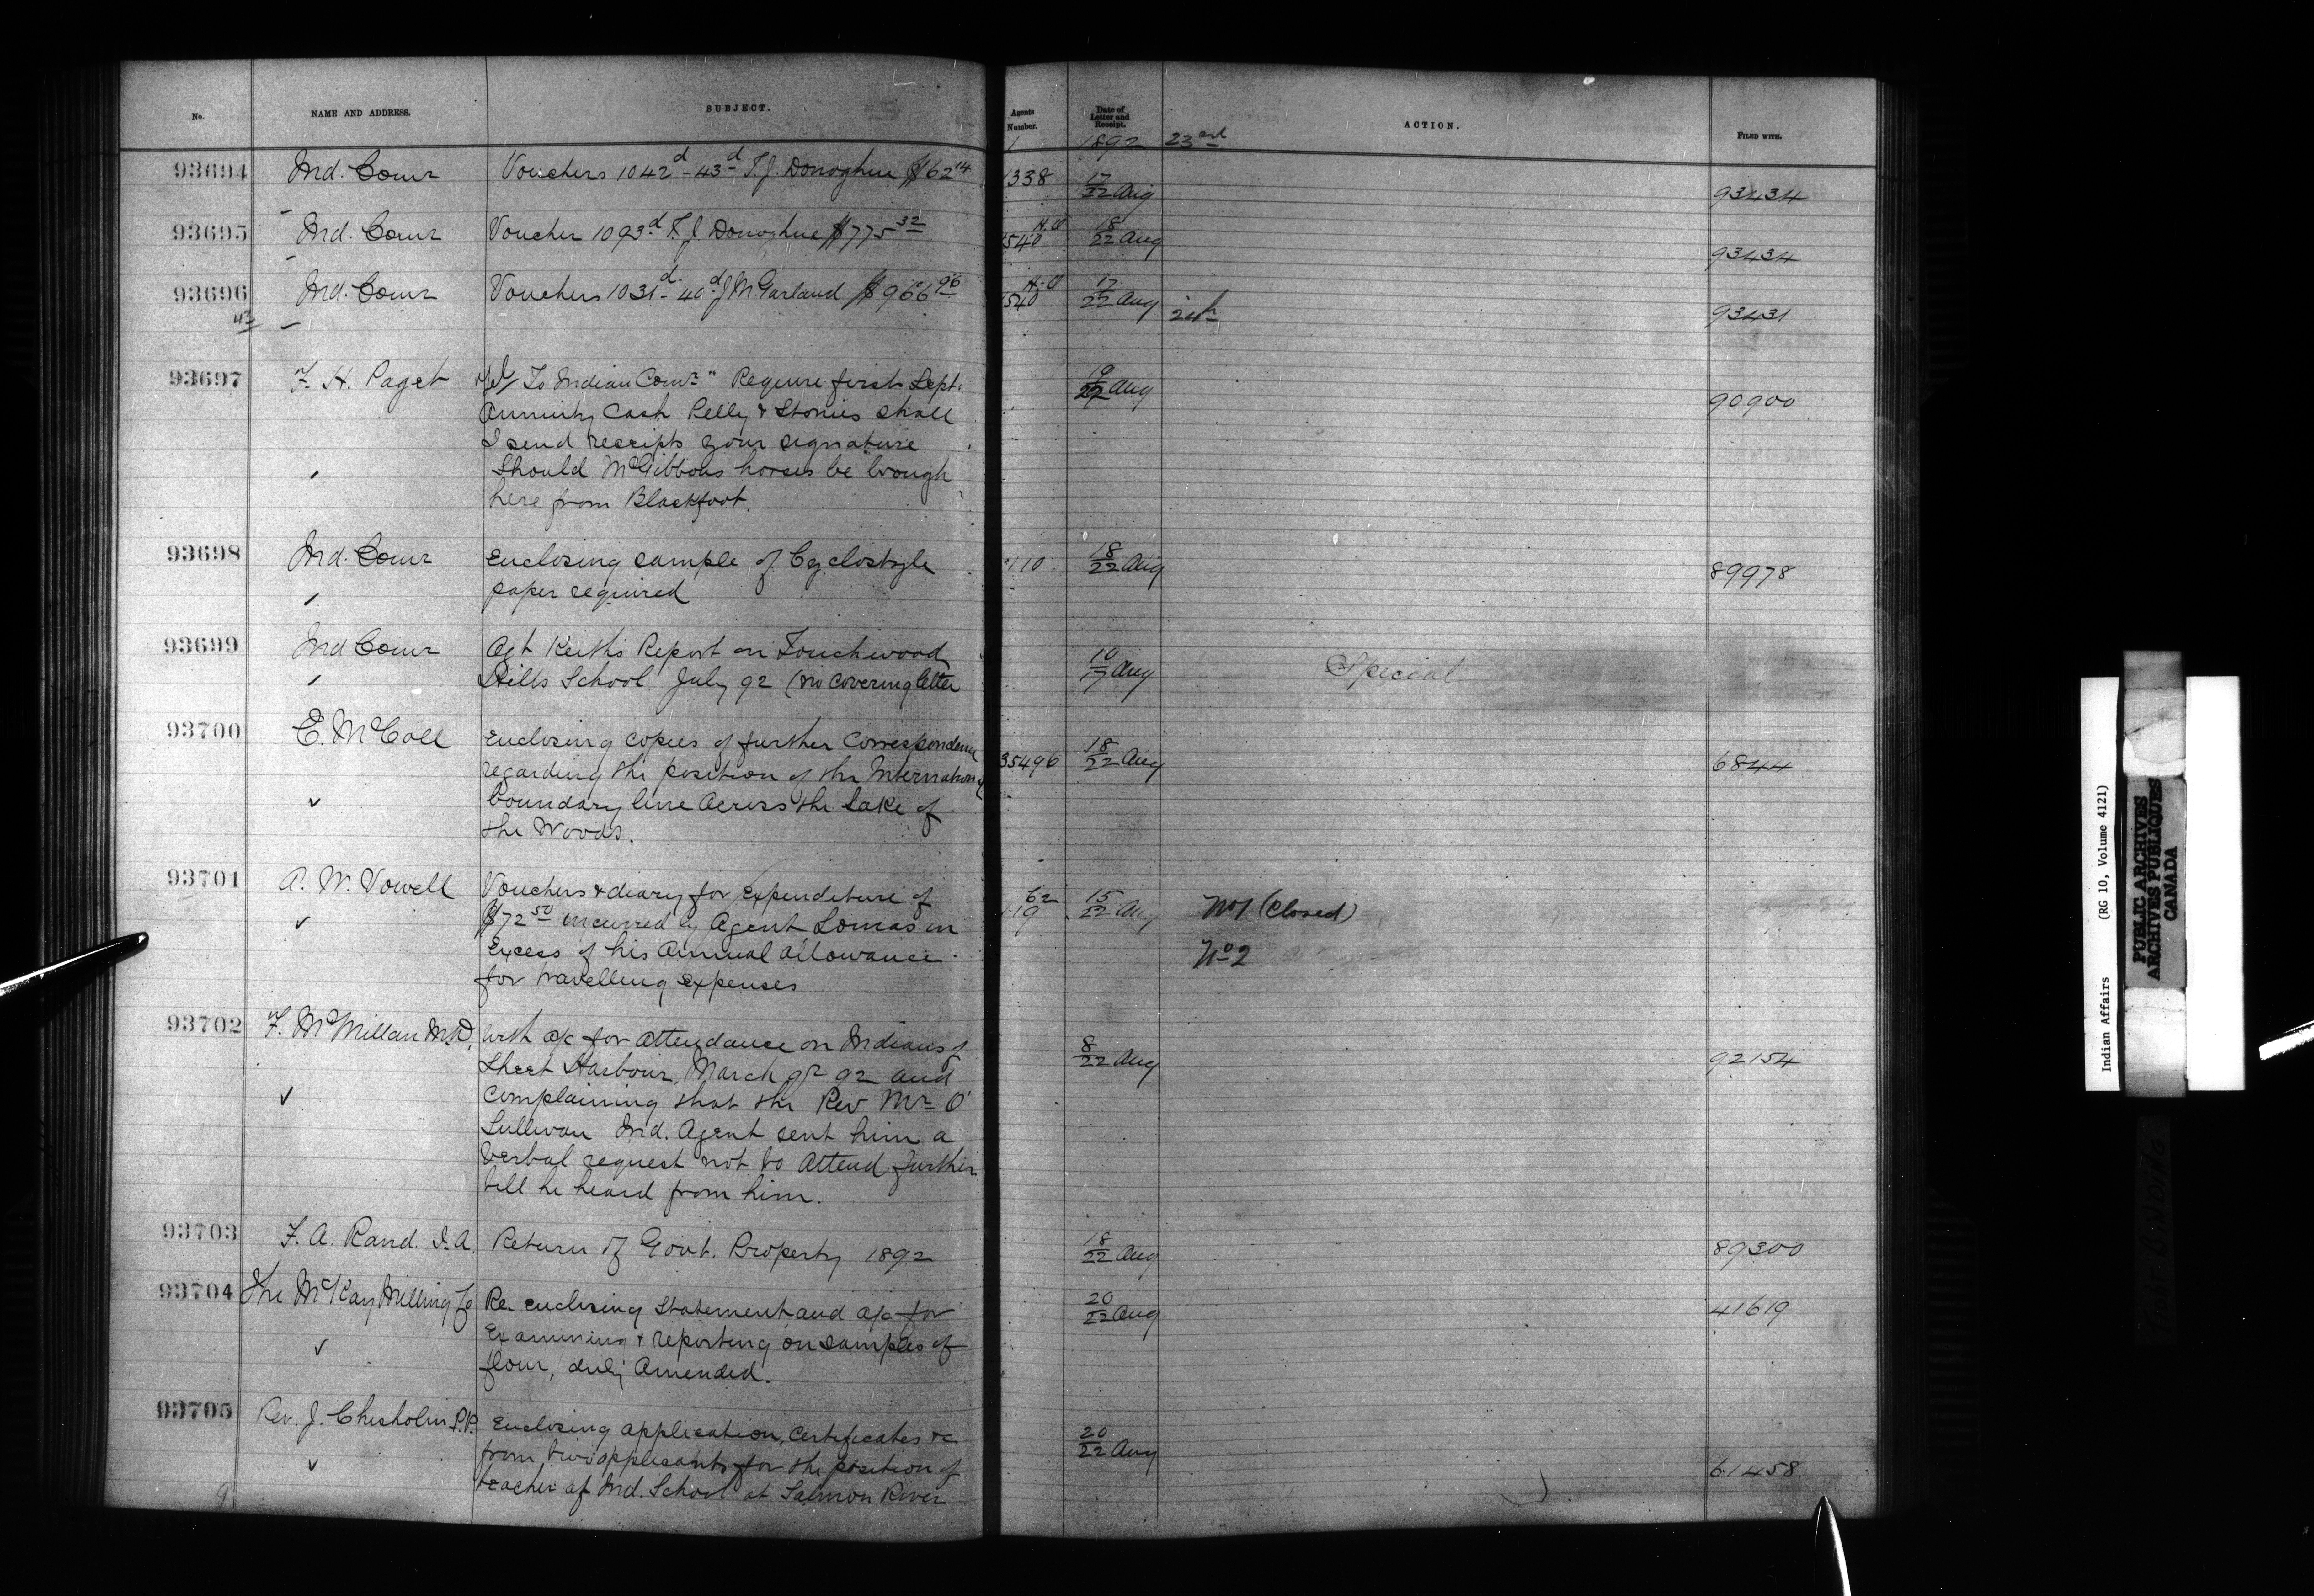 No. NAME AND ADDRESS. SUBJECT. Agents Number. Date of Letter and Receipt. ACTION. FILED WITH.
1892 23rd
93694 Ind. Comr Vouchers 1042d-43d T. J. Donoghue $62 14 1338 17/22 Aug 93434
93695 Ind. Comr Voucher 1093d T. J. Donoghue $775 32 H.O 1540 18/22 Aug 93434
93696 Ind. Comr Vouchers 1031d-40d J M Garland $966 96 H.O 1540 17/22 Aug 93431
24th
93697 F. H. Paget Tel/ To Indian Comr " Require first Sept. 19/22 Aug 90900
Annuity Cash Pelly & Stonies shall
I send receipts your signature
Should McGibbons horses be brough
here from Blackfoot.
93698 Ind. Comr Enclosing sample of Cyclostyle 110 18/22 Aug 89978
paper required
93699 Ind Comr Agt Keith's Report on Touchwood 10/17 Aug Special
Hills School July 92 (no covering letter
93700 E. McColl Enclosing copies of further Correspondence 35496 18/22 Aug 6844
regarding the position of the International
boundary line Across the Lake of
the Woods.
93701 A. W. Vowell Vouchers & diary for expenditure of 62 119 15/22 Aug No 1 (Closed)
$72 50 incurred by Agent Lomas in
Excess of his Annual allowance No 2
for travelling expenses
93702 F. McMillan M.D. With a/c for attendance on Indians of 8/22 Aug 92154
Sheet Harbour, March qr 92 and
complaining that the Rev Mr O'
Sullivan Ind. Agent sent him a
verbal request not to attend further
till he heard from him.
93703 F. A. Rand. I. A. Return of Govt. Property 1892 18/22 Aug 89300
93704 The McKay Milling Co Re. enclosing statement and a/c for 20/22 Aug 41619
Examining & reporting on samples of
flour, duly Amended.
93705 Rev. J. Chisholm P.P. Enclosing application, Certificates &c 20/22 Aug 61458
from two applicants for the position of
teacher at Ind. School at Salmon River
Indian Affairs (RG 10, Volume 4121)
PUBLIC ARCHIVES
ARCHIVES PUBLIQUES
CANADA